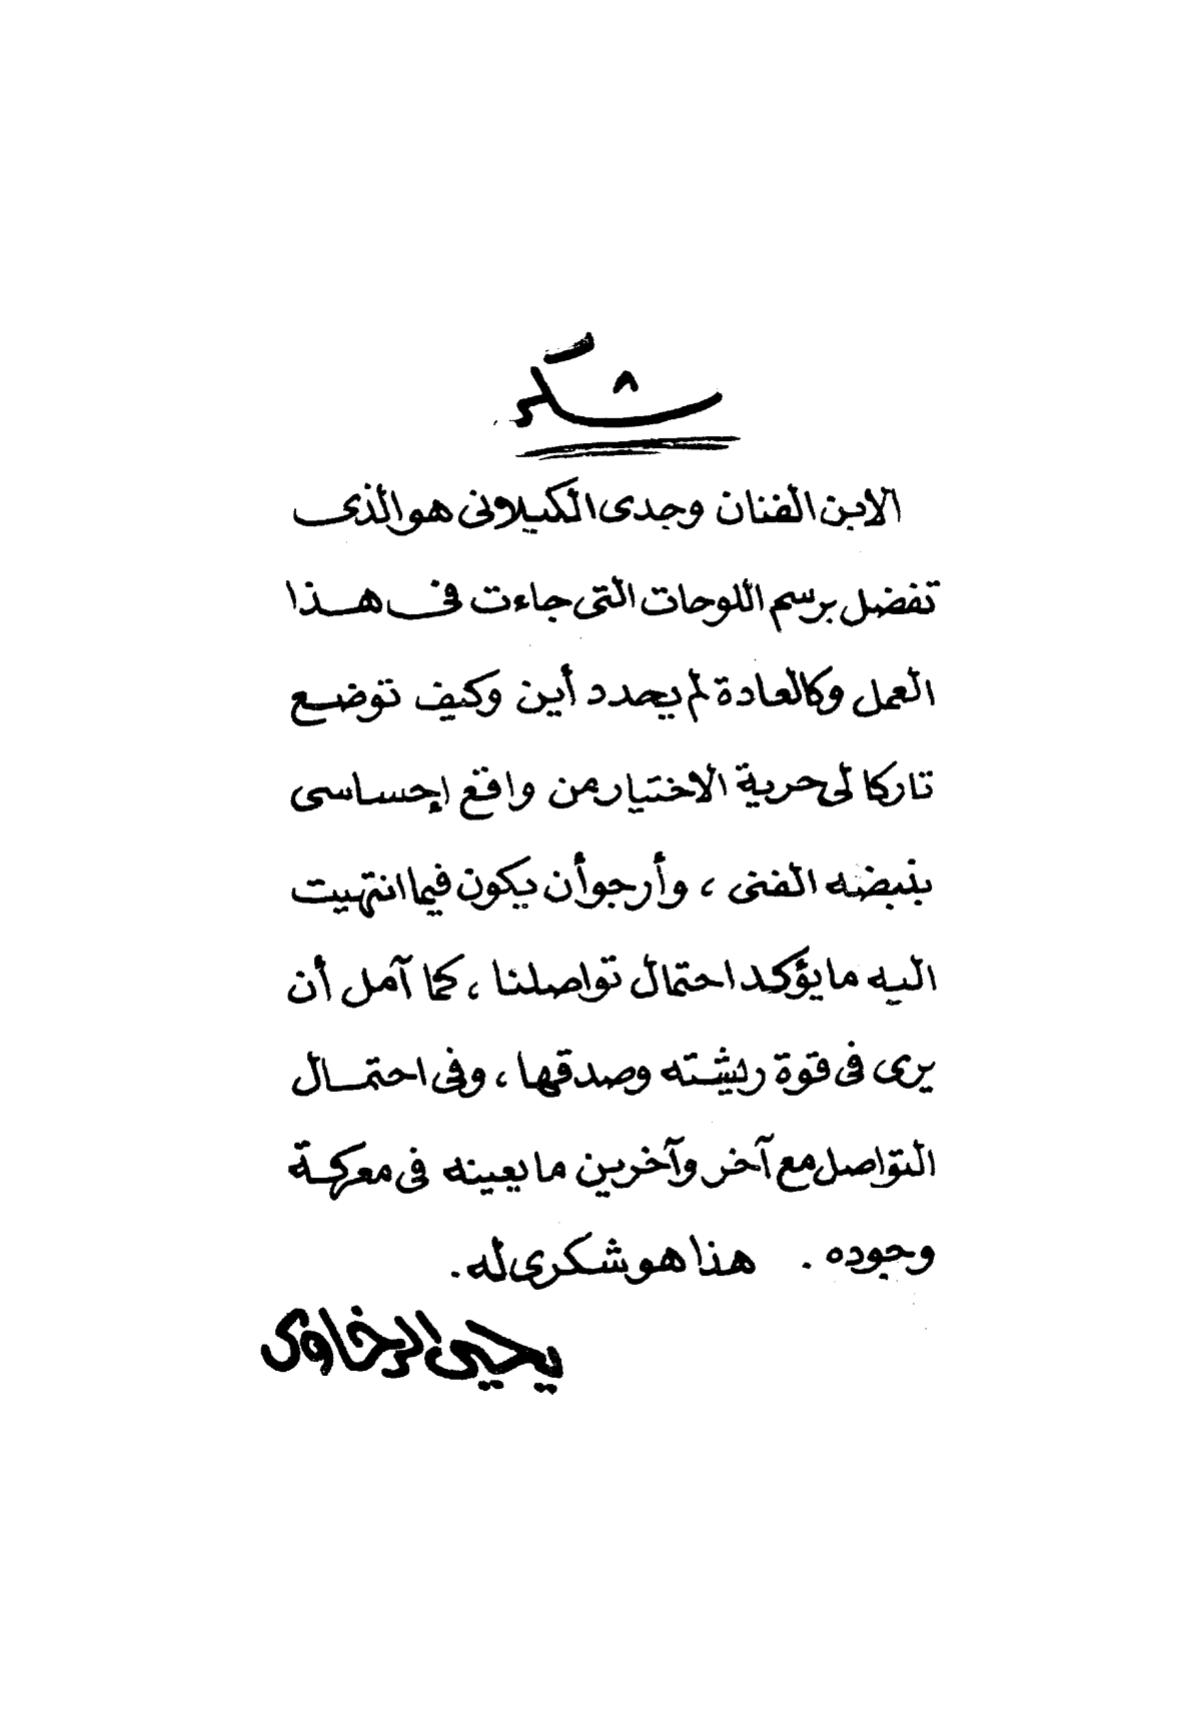 شكر
الابن الفنان وجدى الكيلانى هو الذى
تفضل برسم اللوحات التى جاءت فى هذا
العمل وكالعادة لم يحدد أين وكيف توضع
تاركا لى حرية الاختيار من واقع إحساسى
بنبضه الفنى ، وأرجو أن يكون فيما انتهيت
اليه ما يؤكد احتمال تواصلنا ، كما آمل أن
يرى فى قوة ريشته وصدقها ، وفى احتمال
التواصل مع آخر وآخرين ما يعينه فى معركة
وجوده . هذا هو شكرى له .
يحيى الرخاوى